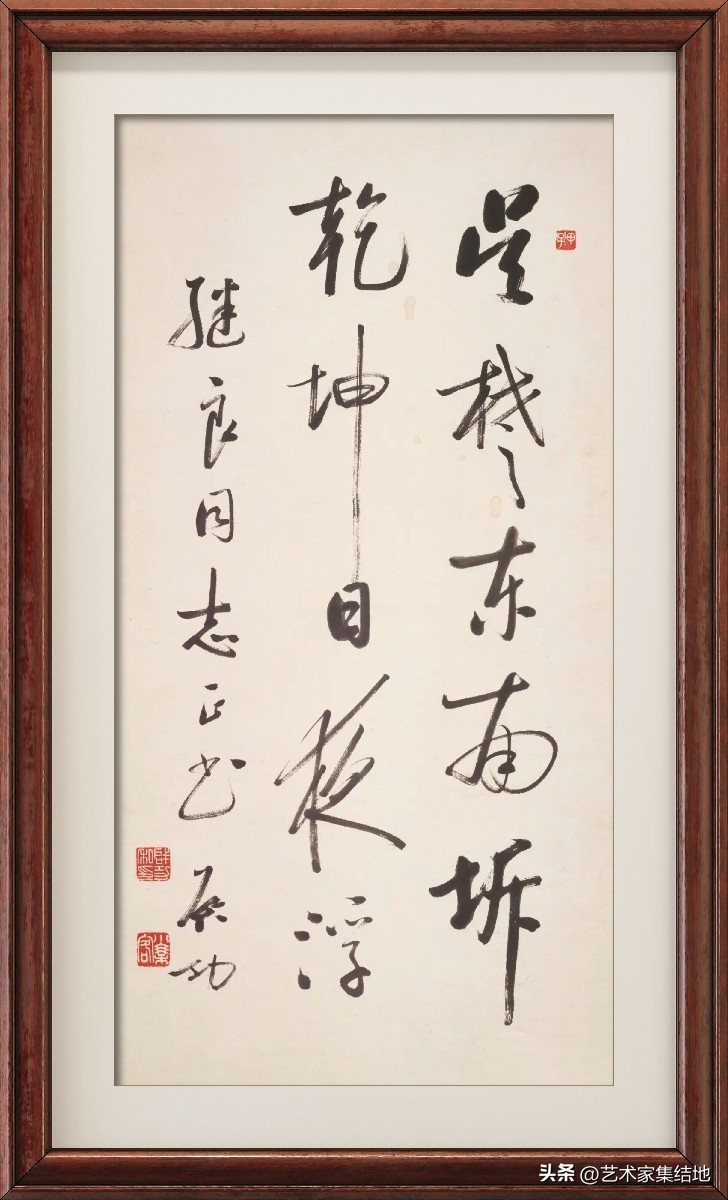 吴楚东南坼
乾坤日夜浮
继良同志正书 启功
头条 @艺术家集结地